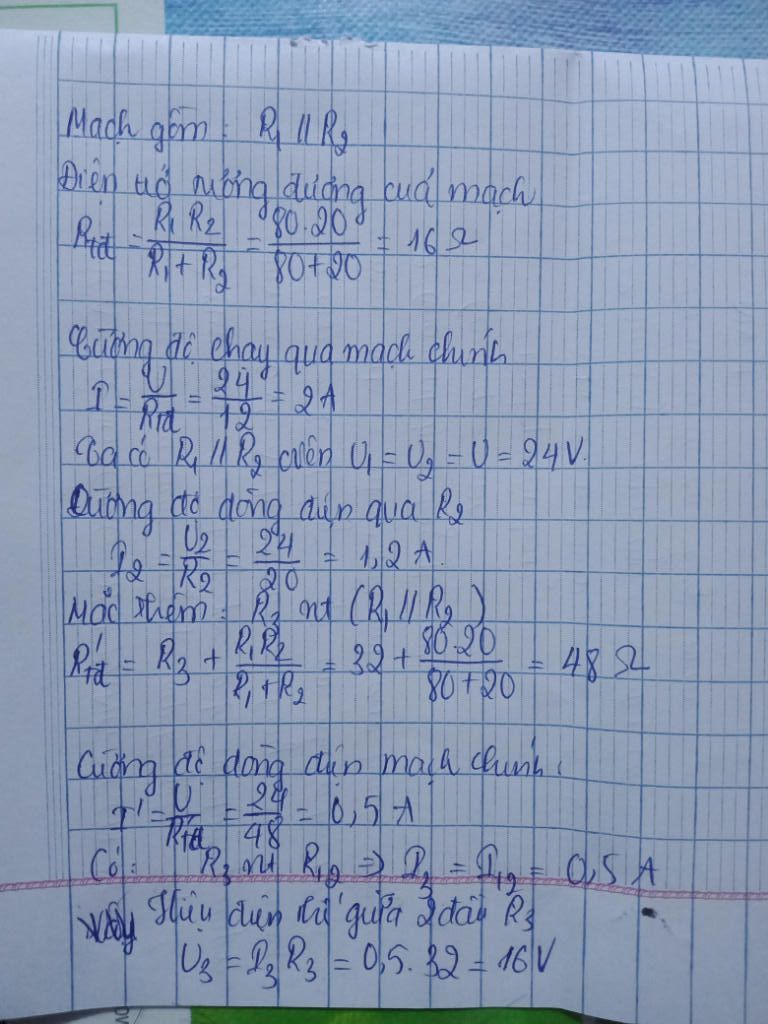 Mạch gồm : R₁ // R₂
Điện trở tương đương của mạch
Rtđ = R₁ R₂ / R₁ + R₂ = 80.20 / 80+20 = 16 Ω
Cường độ chạy qua mạch chính
I = U / Rtđ = 24 / 12 = 2 A
Ta có R₁ // R₂ nên U₁ = U₂ = U = 24 V.
Cường độ dòng điện qua R₂
I₂ = U₂ / R₂ = 24 / 20 = 1,2 A.
Mắc thêm : R₃ nt (R₁ // R₂)
R'tđ = R₃ + R₁R₂ / R₁ + R₂ = 32 + 80.20 / 80+20 = 48 Ω
Cường độ dòng điện mạch chính :
I' = U / R'tđ = 24 / 48 = 0,5 A
Có : R₃ nt R₁₂ => I₃ = I₁₂ = 0,5 A
Hiệu điện thế giữa 2 đầu R₃
U₃ = I₃ R₃ = 0,5. 32 = 16 V